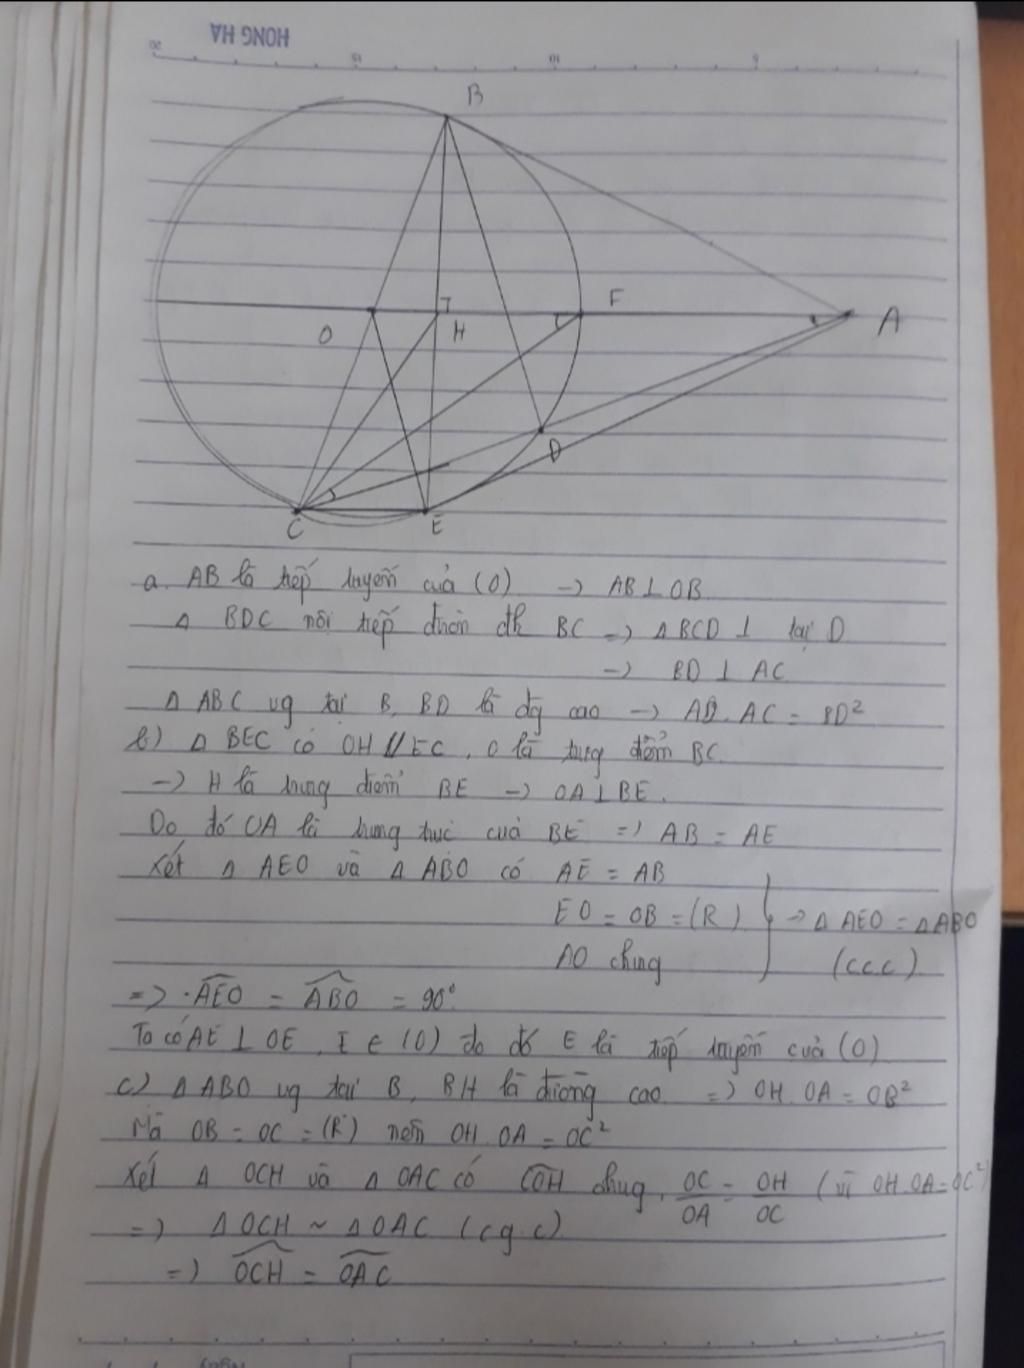 HONG HA
20
15
10
5
B
O
H
F
A
D
C
E
a. AB là tiếp tuyến của (O) → AB ⊥ OB
Δ BDC nội tiếp đk BC => Δ BCD ⊥ tại D
→ BD ⊥ AC
Δ ABC vg tại B, BD là đg cao → AD. AC = BD²
b) Δ BEC có OH // EC, O là trung điểm BC
→ H là trung điểm BE → OA ⊥ BE.
Do đó OA là trung trực của BE => AB = AE
Xét Δ AEO và Δ ABO có AE = AB
EO = OB = (R) } → Δ AEO = Δ ABO
AO chung (c.c.c)
=> AEO = ABO = 90°
Ta có AE ⊥ OE, E ∈ (O) do đó E là tiếp tuyến của (O)
c) Δ ABO vg tại B, BH là đường cao => OH.OA = OB²
Mà OB = OC = (R) nên OH.OA = OC²
Xét Δ OCH và Δ OAC có COH chug, OC/OA = OH/OC (vì OH.OA=OC²)
=> Δ OCH ~ Δ OAC (c.g.c)
=> OCH = OAC